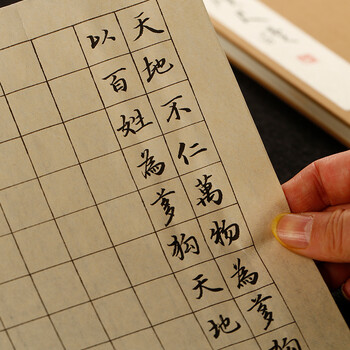 天地不仁萬物為芻狗
以百姓為芻狗天地